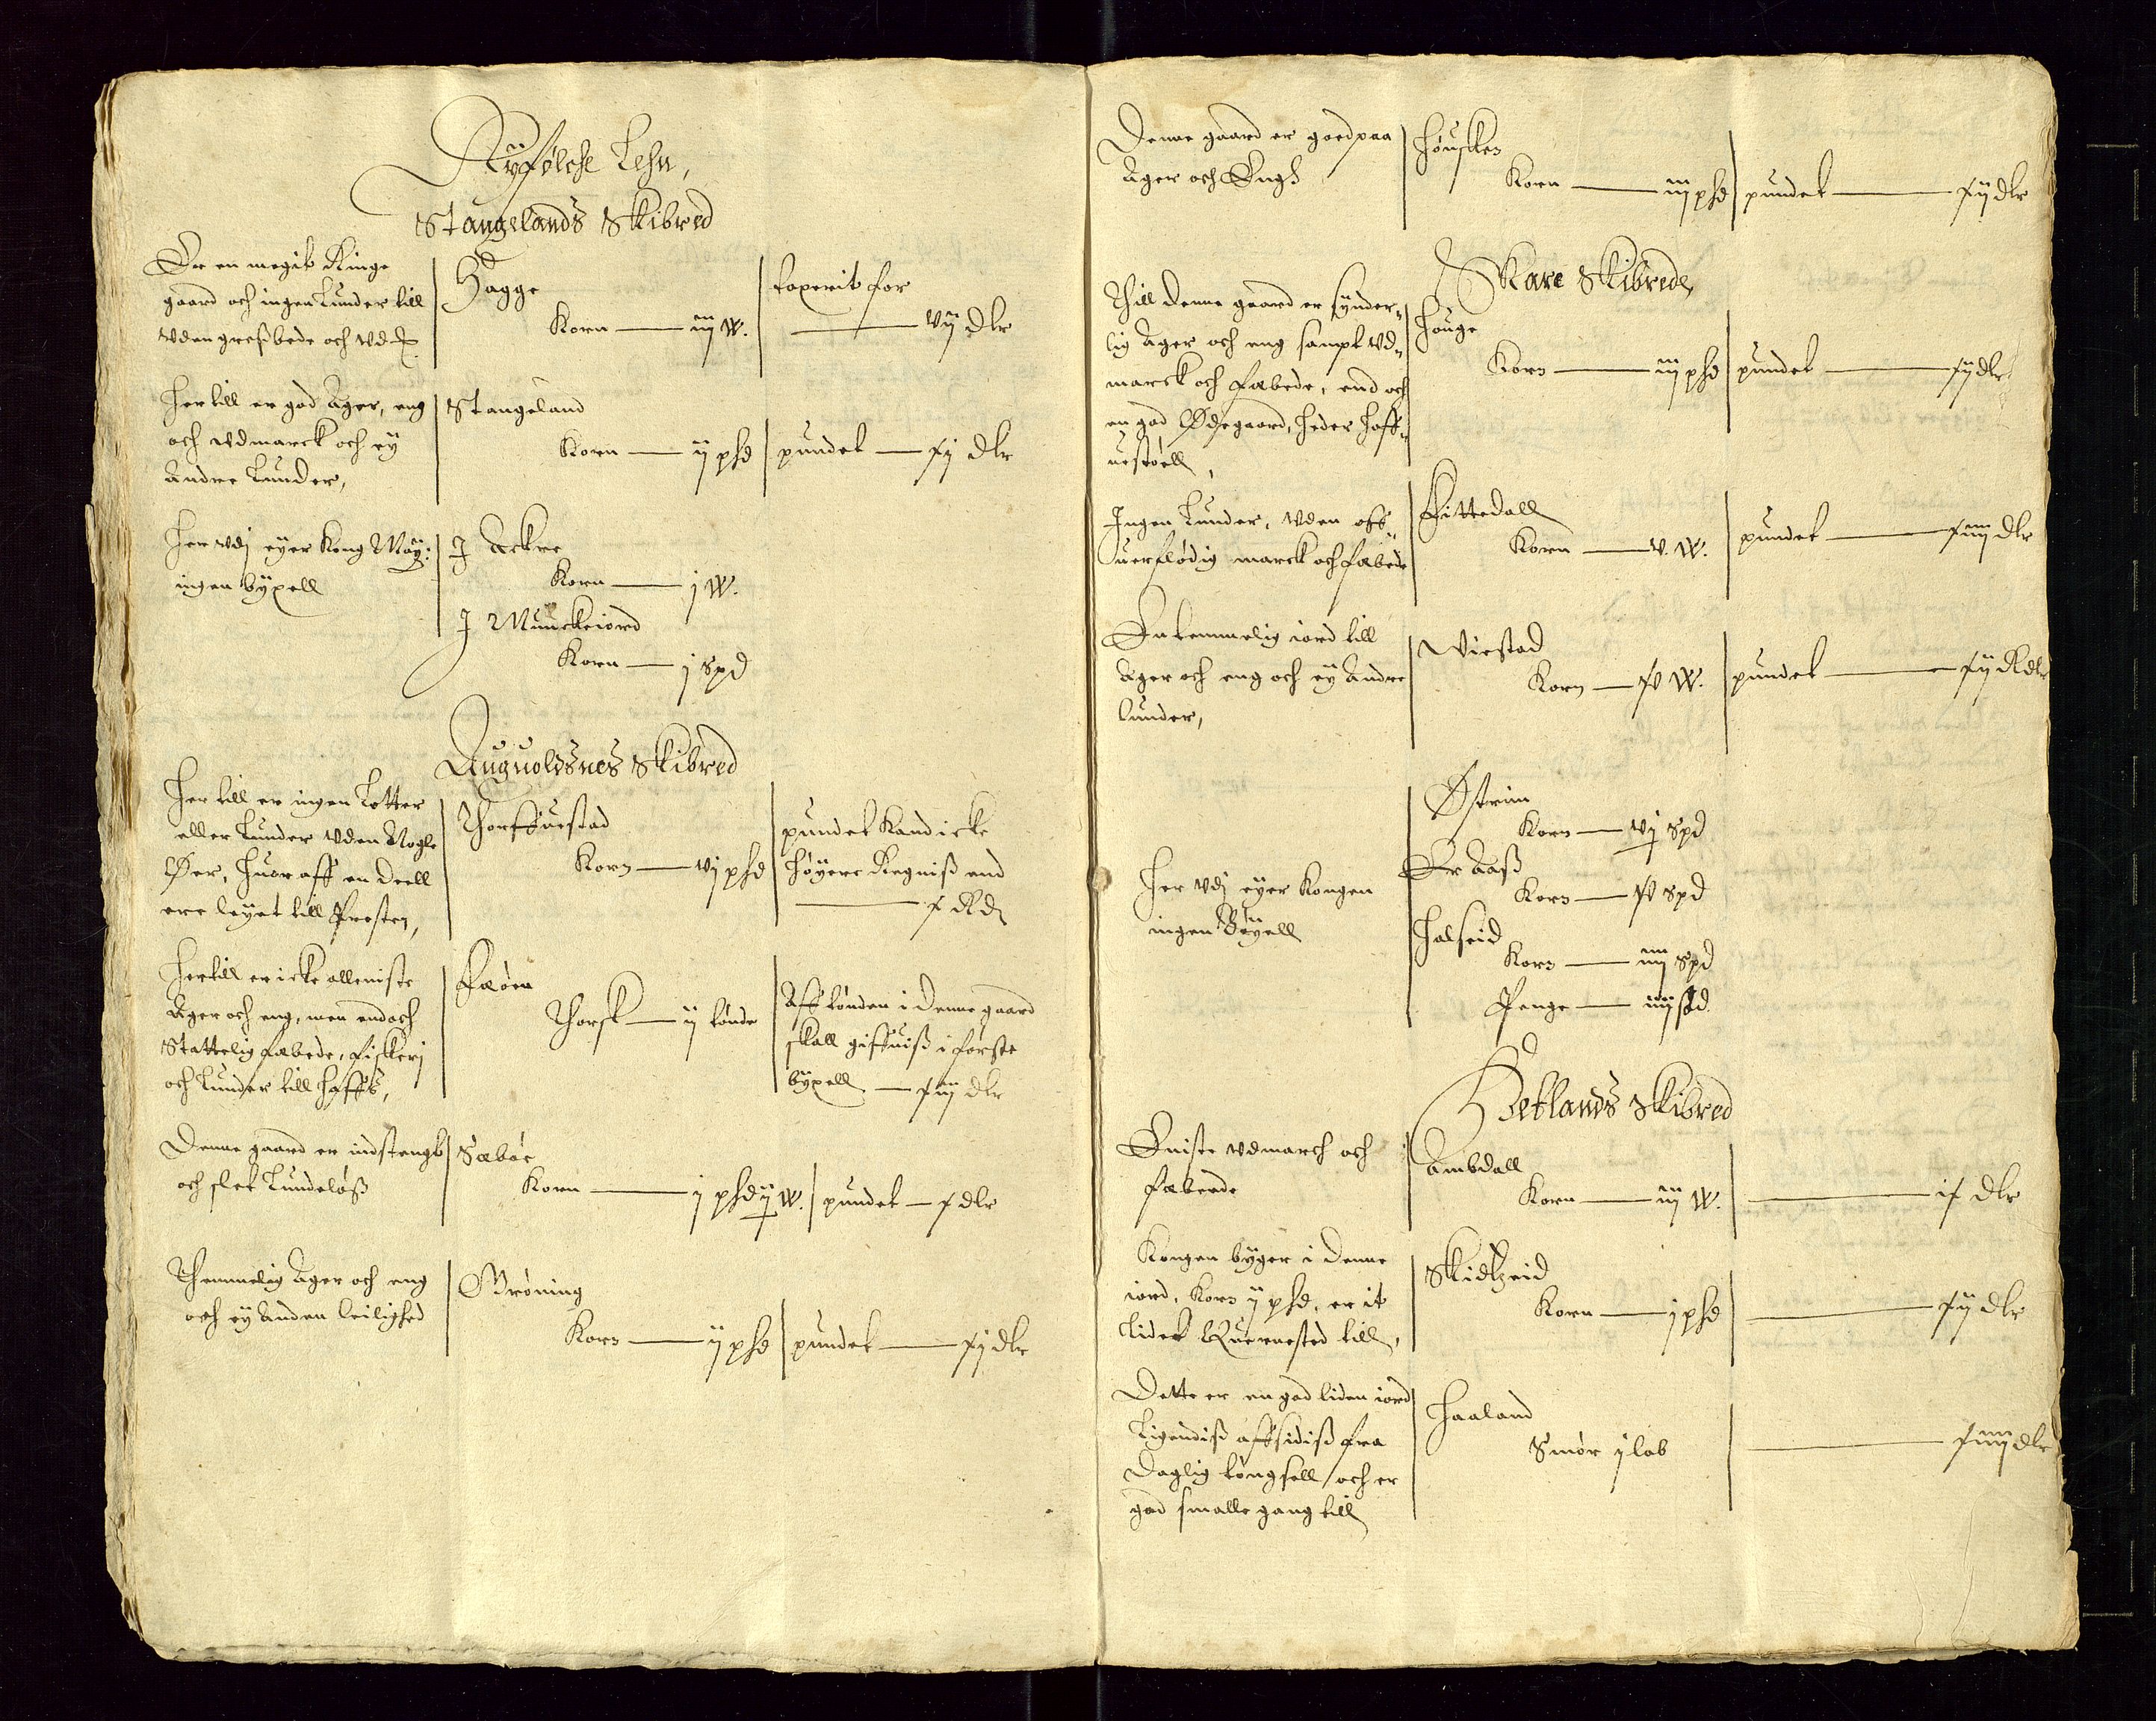 Ryfølche Lehn,
Stangelands Skibred
Er en megit Ringe
gaard och ingen Lunder till
vden gressbede och vdℓ
Hagge
Korn — iij W.
taxerit for
— vij dlr
Her till er god Ager, eng
och vdmarck och ey
Andre Lunder,
Stangeland
Korn — ij phd
pundet — ſij dlr
Her vdj eyer Kong May:
ingen byxell
J Ackre
Korn — j W.
J Munckeiord
Korn — j Spd
Auguoldsnes Skibred
Her till er ingen Lotter
eller Lunder vden Nogle
Øer, huor aff en deell
ere leyet till Presten,
Thorffuestad
Korn — vj phd
pundet Kand icke
høyere Regniss end
— ſ Rd
Her till er icke alleniste
Ager och eng, men endoch
Stattelig fæbede, fiskerj
och Lunder till haffs,
Feøen
Thorsk — ij tønde
Aff tønden i denne gaard
skall giffuiss i første
byxell — ſiij dlr
Denne gaard er indstengt
och slet Lundeløss
Sæbøe
Korn — j phd ij W.
pundet — ſ dlr
Themmelig Ager och eng
och ey Anden leilighed
Grøning
Korn — ij phd
pundet — ſij dlr
Denne gaard er goed paa
Ager och Engh
Høuske
Korn — iij phd
pundet — ſij dlr
Skare Skibrede,
Thill denne gaard er synder,,
lig Ager och eng sampt vd,,
marck och fæbede, end och
en god Ødegaard, heder haff,,
uestøell,
Houge
Korn — iij phd
pundet — ſij dlr
Ingen Lunder, vden off,,
uerflødig marck och fæbede
Fittedall
Korn — v. W.
pundet — ſiiij dlr
En temmelig iord till
Ager och eng och ey Andre
Lunder,
Viestad
Korn — ſv W.
pundet — ſij Rdlr
Her vdj eyer Kongen
ingen Böxell
Østrim
Korn — vj Spd
Er Aass
Korn — ſv Spd
Halseid
Korn — iiij Spd
Penge — iiij ſd
Hetlands Skibred
Eniste vdmarch och
fæbede
Ambdall
Korn — iij W.
— iſ dlr
Kongen byger i denne
iord, Korn ij phd, er it
lidet Quernested till,
Skidtzeid
Korn — j phd
— ſij dlr
Dette er en god liden iord
Ligendiss affsidiss fra
Daglig tøngsell, och er
god smalle gang till
Haaland
Smør j lob
— ſiiij dlr